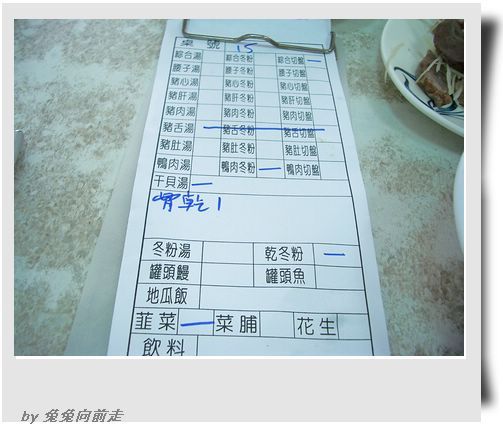 桌號 15
綜合湯 綜合冬粉 綜合切盤 一
腰子湯 腰子冬粉 腰子切盤
豬心湯 豬心冬粉 豬心切盤
豬肝湯 豬肝冬粉 豬肝切盤
豬肉湯 豬肉冬粉 豬肉切盤
豬舌湯 豬舌冬粉 豬舌切盤
豬肚湯 豬肚冬粉 豬肚切盤
鴨肉湯 鴨肉冬粉 一 鴨肉切盤
干貝湯 一
骨乾 1
冬粉湯 乾冬粉 一
罐頭鰻 罐頭魚
地瓜飯
韮菜 一 菜脯 花生
飲料
by 兔兔向前走